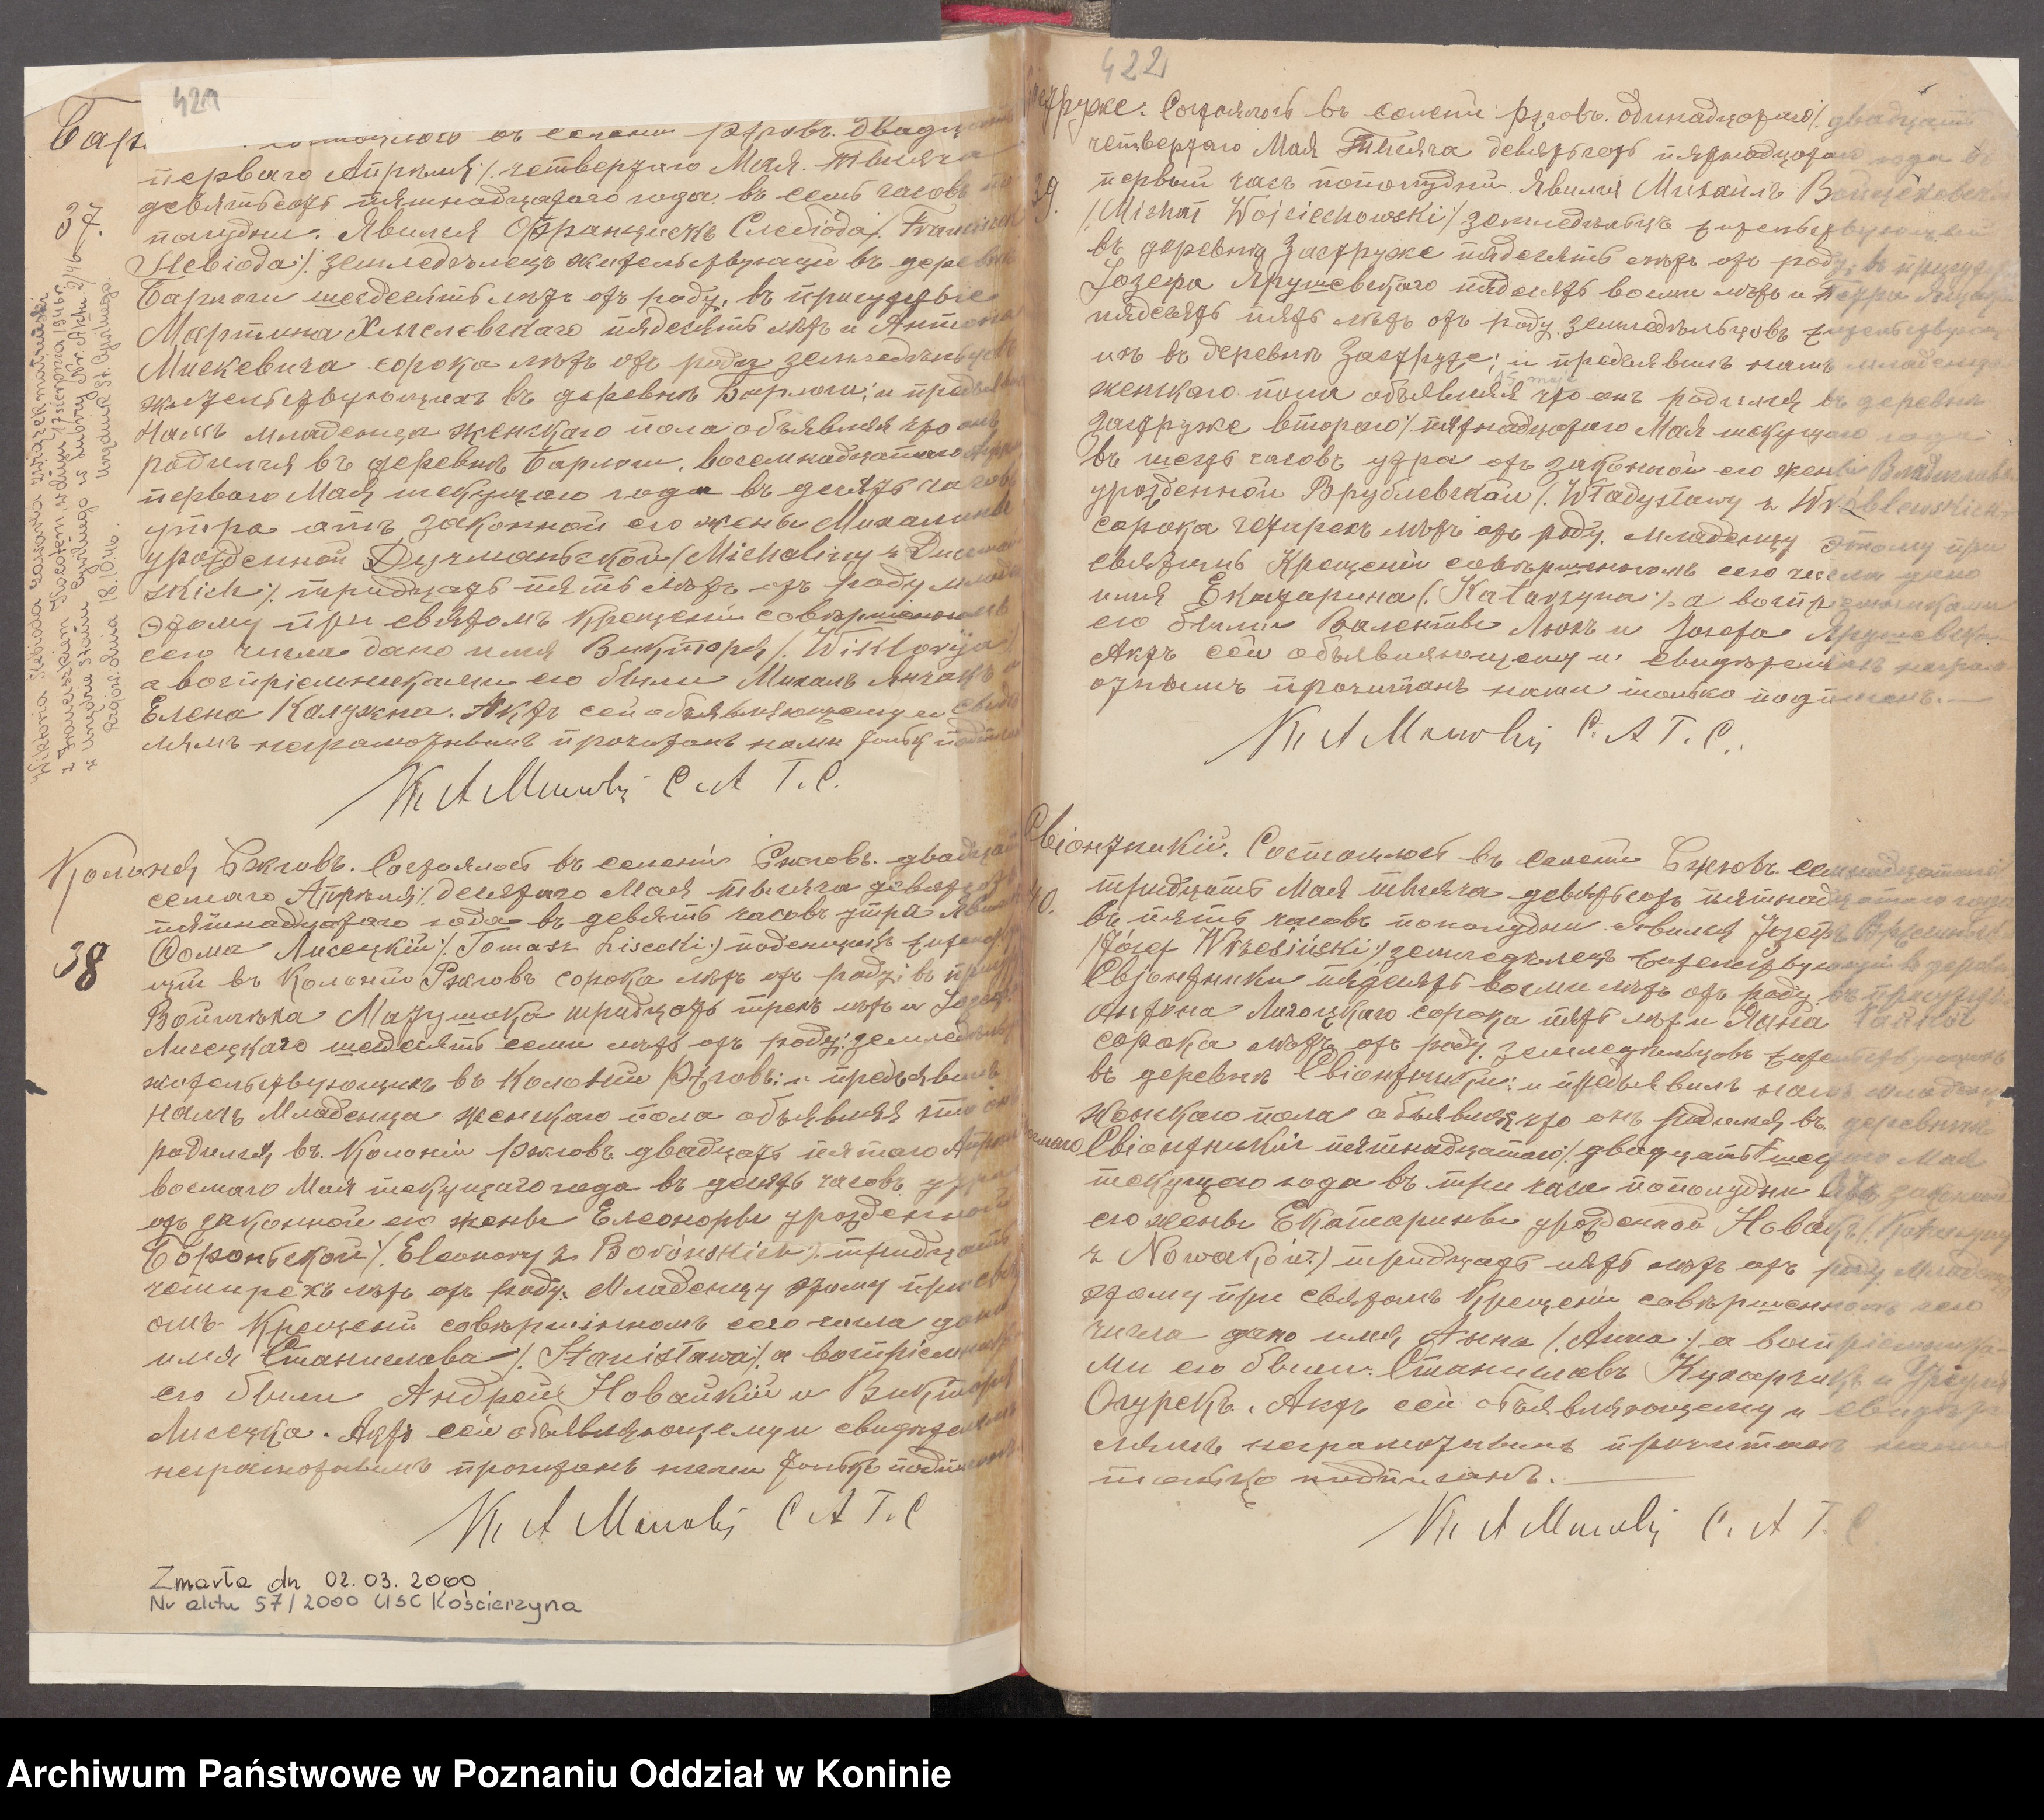 421
состоялось въ селени Рзговъ. двадцать
перваго Апрѣля /. четвертаго Мая. Тысяча
девятьсотъ пятнадцатаго года, въ семь часовъ по
полудни. Явился Францишекъ Слебіода /. Franciszek
Slebioda /. земледѣлецъ жительствующій въ деревнѣ
Барлоги шестдесять лѣтъ отъ роду, въ присутствіе
Мартина Хмелевскаго пядесять лѣтъ и Антона
Мискевича сорока лѣтъ отъ роду земледѣльцевъ
жительствующихъ въ деревнѣ Барлоги; и предъявилъ
намъ младенца женскаго пола объявляя что онъ
родился въ деревнѣ Барлоги, восемнадцатаго Апрѣля
перваго Мая текущаго года въ десять часовъ
утра отъ законной его жены Михалины
урожденной (Michaliny z
skich /. тридцать пять лѣтъ отъ роду младенцу
этому при святомъ крещени совершенномъ
сего числа дано имя Викторя /. Wiktorya /.
а воспріемниками его были Михалъ Янчакъ и
Елена Калужна. Актъ сей объявляющему и свидѣ
лямъ неграмотнымъ прочитанъ нами только подписанъ
C A T. C.
37.
Wiktoria Slebioda zawarła związek małżeński
z Franciszkiem
w urzędzie stanu cywilnego
urzędnik St. Cywilnego.
dnia 18.10.46.
Колонія Ржговъ. Состоялось въ селени Ржговъ. двадцать
семаго Апрѣля /. десятаго Мая тысяча девятьсотъ
38
пятнадцатаго года въ девять часовъ утра явился
Фома Лисецкій /. Tomasz Lisecki /) поденщикъ жительству
щій въ Колоніи Ржговъ сорока лѣтъ отъ роду; въ присут
Войцѣха Матушака тридцать трехъ лѣтъ и Іозефа
Лисецкаго шестдесять семи лѣтъ отъ роду; земледѣльц
жительствующихъ въ Колоніи Рзговъ; и предъявилъ
намъ Младенца женскаго пола объявляя что онъ
родился въ Колоніи Ржговъ двадцать пятаго Апрѣля
восмаго Мая текущаго года въ десять часовъ утра
отъ законной его жены Елеоноры урожденной
Боровской /. Eleonory z Borowskich /. тридцать
четырехъ лѣтъ отъ роду. Младенцу этому при свят
омъ Крещени совершенномъ сего числа дано
имя Станислава /. Stanisława /. а воспріемниками
его были Андрей Новацкій и Викторя
Лисецка. Актъ сей объявляющему и свидѣтелямъ
неграмотнымъ прочитанъ нами только подписанъ
C A T. C
Zmarła dn 02.03.2000
Nr aktu 57/2000 USC Kościerzyna
422
Застружe. Состоялось въ селени Рзговъ. одинадцатаго /. двадцать
четвертаго Мая Тысяча девятьсотъ пятнадцатаго года въ
39.
первый часъ пополудни. Явился Михаилъ Войцѣховскій
/. Michał Wojciechowski /) земледѣлецъ жительствующій
въ деревнѣ Застружe пядесять лѣтъ отъ роду; въ присутств
Іозефа Ярушевскаго пядесятъ восми лѣтъ и Петра
пядесять пять лѣтъ отъ роду земледѣльцовъ жительствующ
ихъ въ деревнѣ Застружe; и предъявилъ намъ младенца
женскаго пола объявляя что онъ родился въ деревнѣ
Застружe втораго /. пятнадцатаго Мая текущаго года
въ шесть часовъ утра отъ законной его жены Владиславы
урожденной Врублевской /. Władysławy z Wróblewskich
сорока четырехъ лѣтъ отъ роду. Младенцу этому при
святомъ Крещени совершенномъ сего числа дано
имя Екатарина (. Katarzyna /. а воспріемниками
его были Валенты и Іозефа Ярушевска
Актъ сей объявляющему и свидѣтелямъ неграм
отнымъ прочитанъ нами только подписанъ.
C. A T. C.
Свіонтники. Состоялось въ селени Ржговъ семнадцатаго /.
40.
тридцать Мая тысяча девятьсотъ пятнадцатаго года
въ пять часовъ пополудни. Явился Іозефъ
(Józef Wrzesiński /) земледѣлецъ жительствующій въ деревнѣ
Свіонтники пядесять восми лѣтъ отъ роду, въ присутств
Антона сорока пять лѣтъ и Яна
сорока лѣтъ отъ роду. земледѣльцовъ жительствующихъ
въ деревнѣ Свіонтники; и предъявилъ намъ младенца
женскаго пола объявляя что онъ родился въ деревнѣ
Свіонтники пятнадцатаго /. двадцать Мая
текущаго года въ три часа пополудни отъ законной
его жены Екатарины урожденной Новакъ /. Katarzyny
z Nowaków /) тридцать пять лѣтъ отъ роду Младенцу
этому при святомъ Крещени совершенномъ сего
числа дано имя Анна /. Anna /. а воспріемника
ми его были: Станиславъ и
Огурекъ. Актъ сей объявляющему и свидѣте
лямъ неграмотнымъ прочитанъ нами
только подписанъ.
C. A T. C
Archiwum Państwowe w Poznaniu Oddział w Koninie